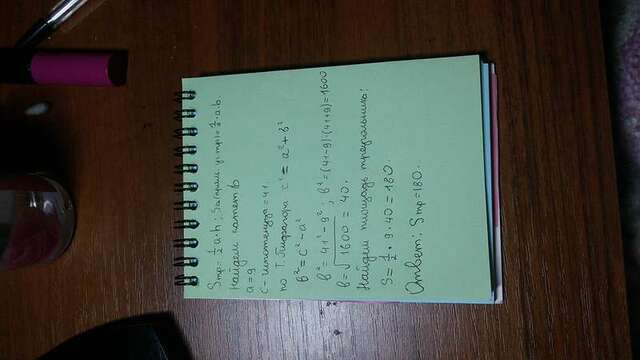 Sтр = 1/2 a·h; Sа(прям. уг. тр) = 1/2·a·b.
Найдем катет b
a = 9
c – гипотенуза = 41.
по Т. Пифагора c² = a² + b²
b² = c² – a²
b² = 41² – 9²; b² = (41-9)·(41+9) = 1600
b = √1600 = 40.
Найдем площадь треугольника:
S = 1/2 · 9 · 40 = 180.
Ответ: Sтр = 180.